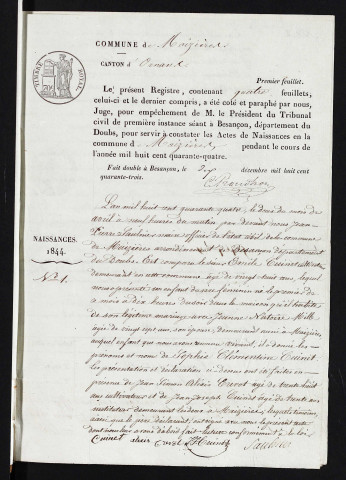 COMMUNE de Maizières
CANTON d'Ornans
Premier feuillet.
TIMBRE ROYAL
Le présent Registre, contenant quatre feuillets,
celui-ci et le dernier compris, a été coté et paraphé par nous,
Juge, pour empêchement de M. le Président du Tribunal
civil de première instance séant à Besançon, département du
Doubs, pour servir à constater les Actes de Naissances en la
commune de Maizières pendant le cours de
l'année mil huit cent quarante-quatre.
Fait double à Besançon, le décembre mil huit cent
quarante-trois.
NAISSANCES.
1844.
N° 1.
L'an mil huit cent quarante quatre, le du mois de
avril à neuf heures du matin par devant nous Jean
Pierre maire officier de l'état civil de la commune
de Maizières arrondissement de Besançon département
du Doubs. Est comparu le sieur Cuinet
demeurant en cette commune, âgé de vingt huit ans, lequel
nous a présenté un enfant du sexe féminin né le premier
à dix heures du soir dans la maison qu'il habite
de son légitime mariage avec Jeanne
âgée de vingt sept ans, son épouse demeurant aussi à Maizières,
auquel enfant il donne les
prénoms et nom de Sophie Clémentine Cuinet.
Les présentation et déclaration ci dessus ont été faites en
présence de Jean Simon âgé de trente huit
ans cultivateur et de Jean Joseph Cuinet âgé de trente ans
instituteur demeurant les deux à Maizières, lesquels témoins,
ainsi que le père déclarant, ont signé avec nous le présent acte
dont lecture a été faite conformément à la loi.
Cuinet Cuinet